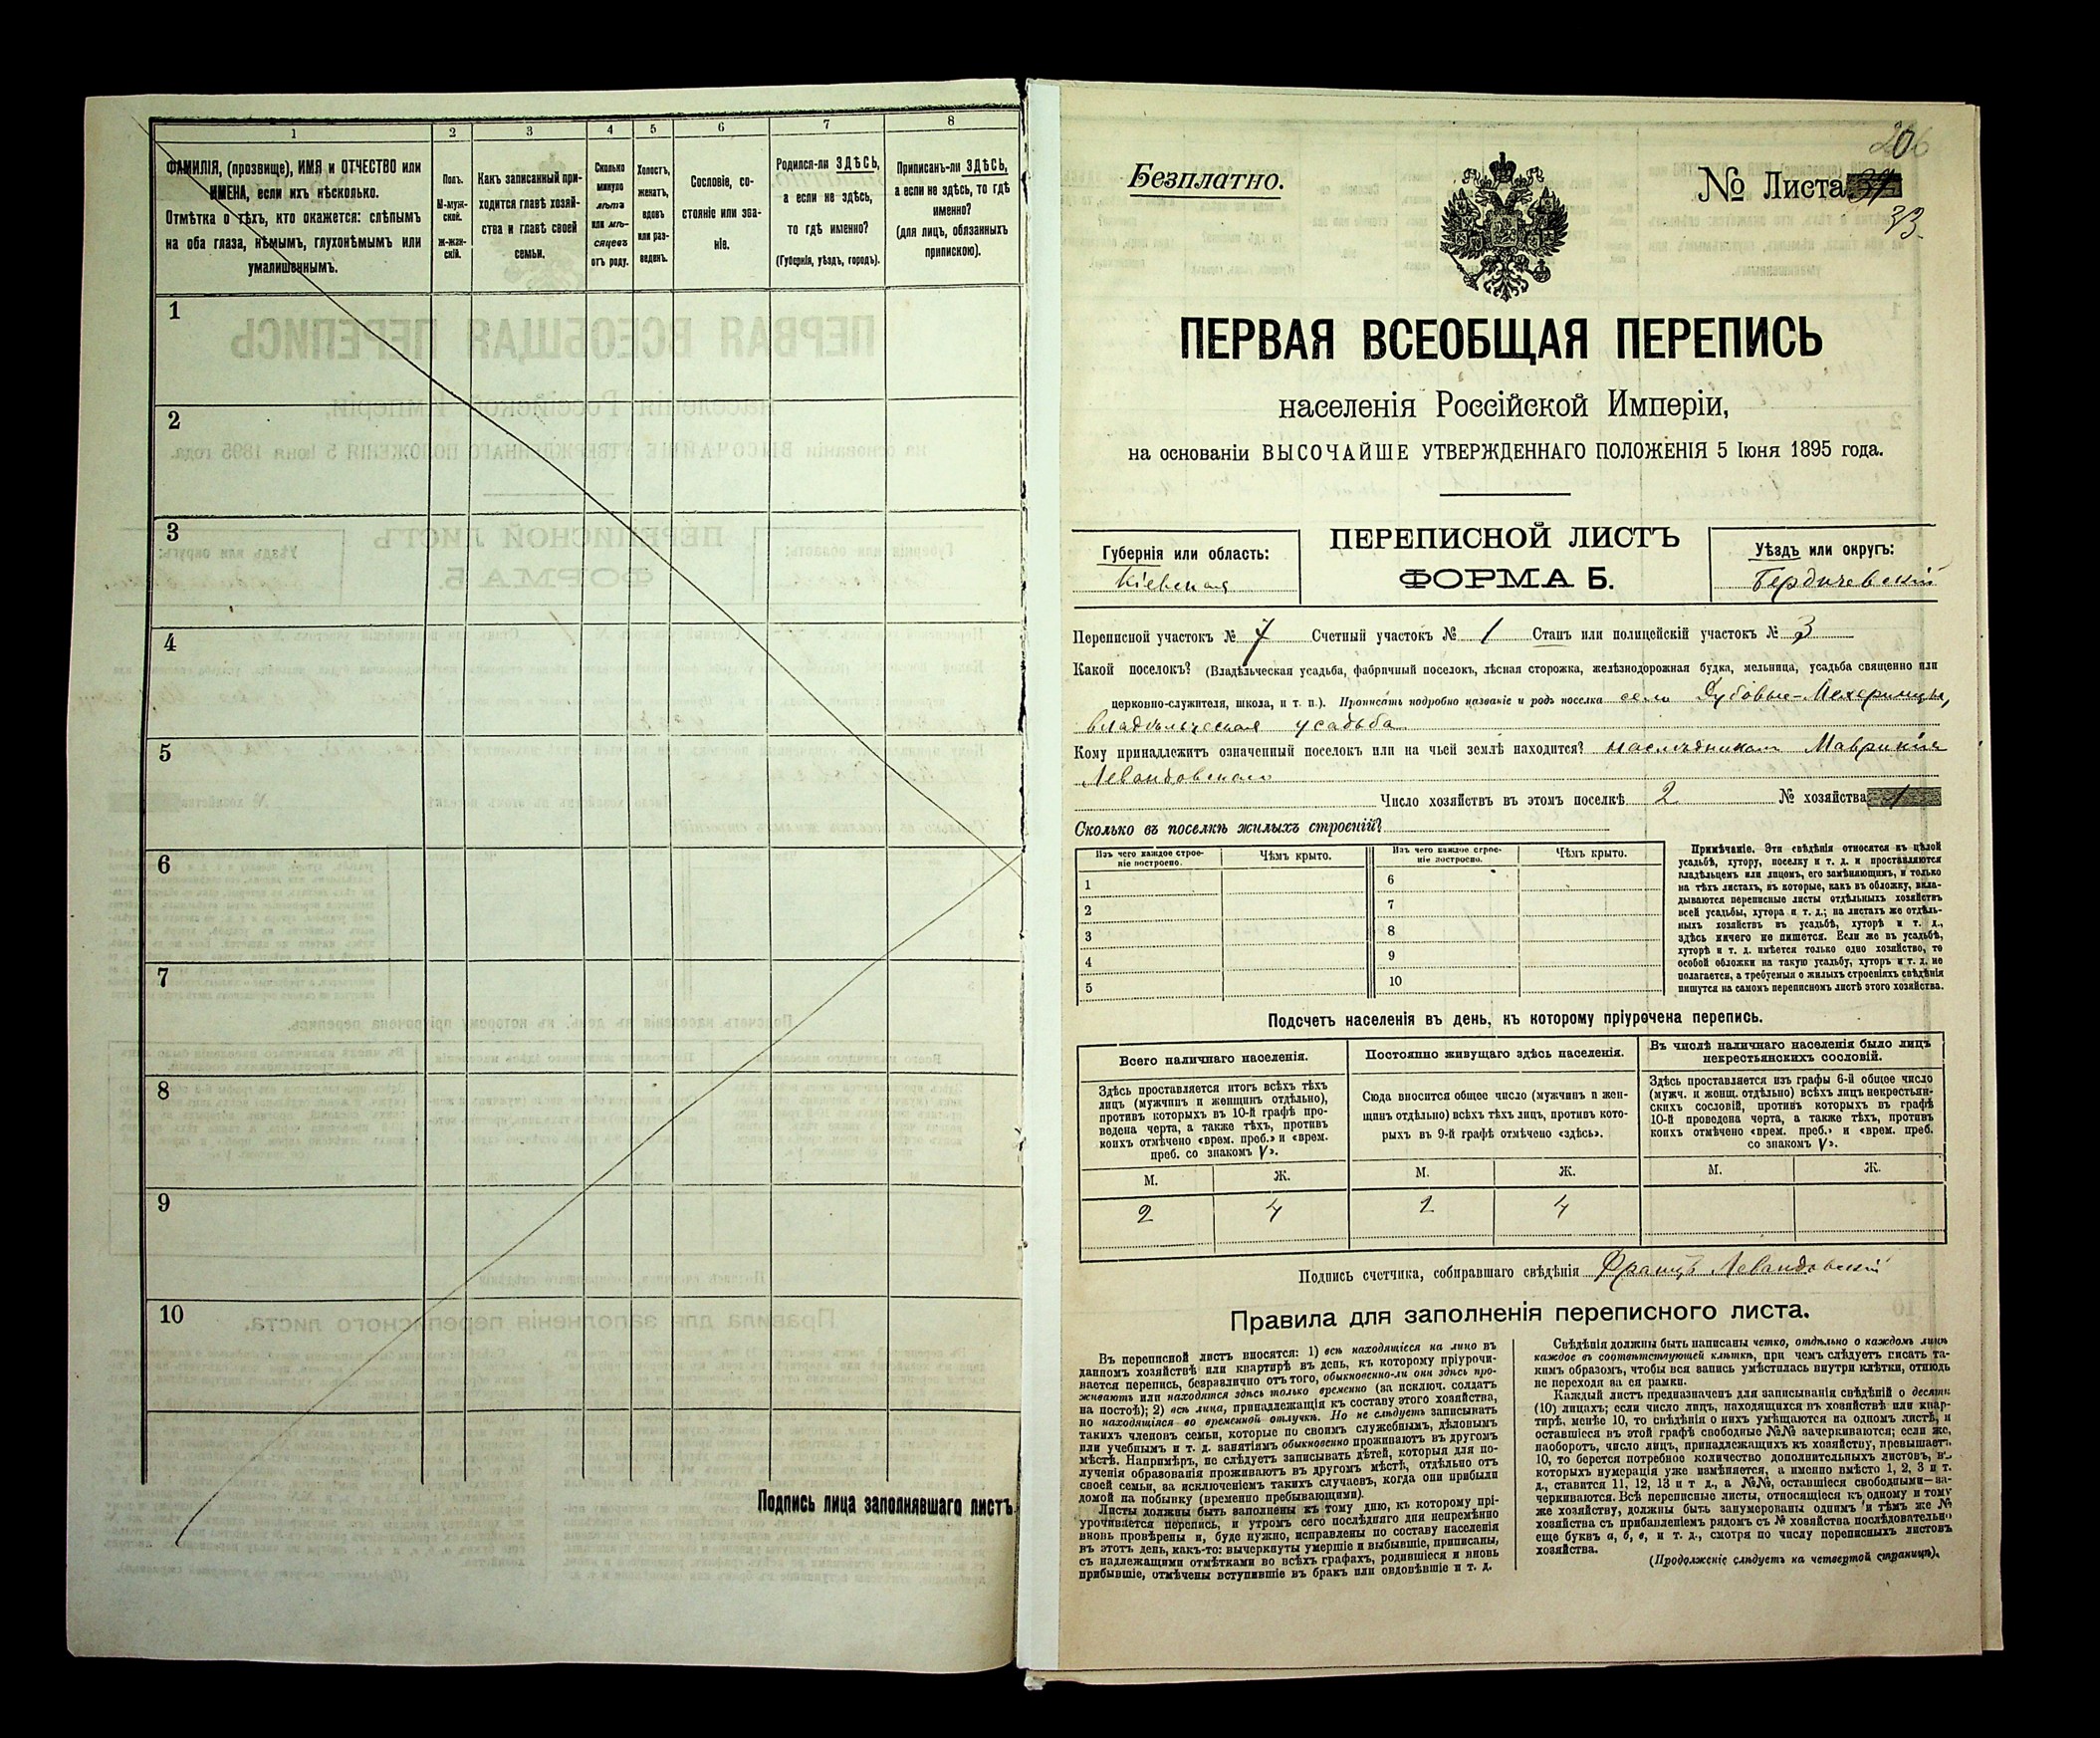 1 2 3 4 5 6 7 8
ФАМИЛІЯ, (прозвище), ИМЯ и ОТЧЕСТВО или
ИМЕНА, если ихъ нѣсколько.
Отмѣтка о тѣхъ, кто окажется: слѣпымъ
на оба глаза, нѣмымъ, глухонѣмымъ или
умалишеннымъ.
Полъ.
М-муж-
ской.
Ж-жен-
скій.
Какъ записанный при-
ходится главѣ хозяй-
ства и главѣ своей
семьи.
Сколько
минуло
лѣтъ
или мѣ-
сяцевъ
отъ роду.
Холостъ,
женатъ,
вдовъ
или раз-
веденъ.
Сословіе, со-
стояніе или зва-
ніе.
Родился-ли ЗДѢСЬ,
а если не здѣсь,
то гдѣ именно?
(Губернія, уѣздъ, городъ).
Приписанъ-ли ЗДѢСЬ,
а если не здѣсь, то гдѣ
именно?
(для лицъ, обязанныхъ
припискою).
1
2
3
4
5
6
7
8
9
10
Подпись лица заполнявшаго листъ
Безплатно.
№ Листа
33.
ПЕРВАЯ ВСЕОБЩАЯ ПЕРЕПИСЬ
населенія Россійской Имперіи,
на основаніи ВЫСОЧАЙШЕ УТВЕРЖДЕННАГО ПОЛОЖЕНІЯ 5 Іюня 1895 года.
Губернія или область:
Кіевская
ПЕРЕПИСНОЙ ЛИСТЪ
ФОРМА Б.
Уѣздъ или округъ:
Бердичевскій
Переписной участокъ № 7 Счетный участокъ № 1 Станъ или полицейскій участокъ № 3
Какой поселокъ? (Владѣльческая усадьба, фабричный поселокъ, лѣсная сторожка, желѣзнодорожная будка, мельница, усадьба священно или
церковно-служителя, школа, и т. п.). Прописать подробно названіе и родъ поселка село Дубовые-Мехеринцы,
владѣльческая усадьба
Кому принадлежитъ означенный поселокъ или на чьей землѣ находится? наслѣдникамъ Маврикія
Левандовскаго
Число хозяйствъ въ этомъ поселкѣ 2 № хозяйства 1
Сколько въ поселкѣ жилыхъ строеній?
Изъ чего каждое строе-
ніе построено.
Чѣмъ крыто.
Изъ чего каждое строе-
ніе построено.
Чѣмъ крыто.
1 6
2 7
3 8
4 9
5 10
Примѣчаніе. Эти свѣдѣнія относятся къ цѣлой
усадьбѣ, хутору, поселку и т. д. и проставляются
владѣльцемъ или лицомъ, его замѣняющимъ, и только
на тѣхъ листахъ, въ которые, какъ въ обложку, вкла-
дываются переписные листы отдѣльныхъ хозяйствъ
всей усадьбы, хутора и т. д.; на листахъ же отдѣль-
ныхъ хозяйствъ въ усадьбѣ, хуторѣ и т. д.,
здѣсь ничего не пишется. Если же въ усадьбѣ,
хуторѣ и т. д. имѣется только одно хозяйство, то
особой обложки на такую усадьбу, хуторъ и т. д. не
полагается, а требуемыя о жилыхъ строеніяхъ свѣдѣнія
пишутся на самомъ переписномъ листѣ этого хозяйства.
Подсчетъ населенія въ день, къ которому пріурочена перепись.
Всего наличнаго населенія.
Здѣсь проставляется итогъ всѣхъ тѣхъ
лицъ (мужчинъ и женщинъ отдѣльно),
противъ которыхъ въ 10-й графѣ про-
ведена черта, а также тѣхъ, противъ
коихъ отмѣчено «врем. преб.» и «врем.
преб. со знакомъ V».
Постоянно живущаго здѣсь населенія.
Сюда вносится общее число (мужчинъ и жен-
щинъ отдѣльно) всѣхъ тѣхъ лицъ, противъ кото-
рыхъ въ 9-й графѣ отмѣчено «здѣсь».
Въ числѣ наличнаго населенія было лицъ
некрестьянскихъ сословій.
Здѣсь проставляется изъ графы 6-й общее число
(мужч. и женщ. отдѣльно) всѣхъ лицъ некрестьян-
скихъ сословій, противъ которыхъ въ графѣ
10-й проведена черта, а также тѣхъ, противъ
коихъ отмѣчено «врем. преб.» и «врем. преб.
со знакомъ V».
М. Ж. М. Ж. М. Ж.
2 4 2 4
Подпись счетчика, собиравшаго свѣдѣнія Францъ Левандовскій
Правила для заполненія переписного листа.
Въ переписной листъ вносятся: 1) всѣ находящіеся на лицо въ
данномъ хозяйствѣ или квартирѣ въ день, къ которому пріурочи-
вается перепись, безразлично отъ того, обыкновенно-ли они здѣсь про-
живаютъ или находятся здѣсь только временно (за исключ. солдатъ
на постоѣ); 2) всѣ лица, принадлежащія къ составу этого хозяйства,
но находящіяся во временной отлучкѣ. Но не слѣдуетъ записывать
такихъ членовъ семьи, которые по своимъ служебнымъ, дѣловымъ
или учебнымъ и т. д. занятіямъ обыкновенно проживаютъ въ другомъ
мѣстѣ. Напримѣръ, не слѣдуетъ записывать дѣтей, которыя для по-
лученія образованія проживаютъ въ другомъ мѣстѣ, отдѣльно отъ
своей семьи, за исключеніемъ такихъ случаевъ, когда они прибыли
домой на побывку (временно пребывающими).
Листы должны быть заполнены къ тому дню, къ которому прі-
урочивается перепись, и утромъ сего послѣдняго дня непремѣнно
вновь провѣрены и, буде нужно, исправлены по составу населенія
въ этотъ день, какъ-то: вычеркнуты умершіе и выбывшіе, приписаны,
съ надлежащими отмѣтками во всѣхъ графахъ, родившіеся и вновь
прибывшіе, отмѣчены вступившіе въ бракъ или овдовѣвшіе и т. д.
Свѣдѣнія должны быть написаны четко, отдѣльно о каждомъ лицѣ
каждое въ соотвѣтствующей клѣткѣ, при чемъ слѣдуетъ писать та-
кимъ образомъ, чтобы вся запись умѣстилась внутри клѣтки, отнюдь
не переходя за ея рамки.
Каждый листъ предназначенъ для записыванія свѣдѣній о десяти
(10) лицахъ; если число лицъ, находящихся въ хозяйствѣ или квар-
тирѣ, менѣе 10, то свѣдѣнія о нихъ умѣщаются на одномъ листѣ, и
оставшіеся въ этой графѣ свободные №№ зачеркиваются; если же,
наоборотъ, число лицъ, принадлежащихъ къ хозяйству, превышаетъ
10, то берется потребное количество дополнительныхъ листовъ, въ
которыхъ нумерація уже измѣняется, а именно вмѣсто 1, 2, 3 и т.
д., ставится 11, 12, 13 и т д., а №№, оставшіеся свободными—за-
черкиваются. Всѣ переписные листы, относящіеся къ одному и тому
же хозяйству, должны быть занумерованы однимъ и тѣмъ же №
хозяйства съ прибавленіемъ рядомъ съ № хозяйства послѣдовательно
еще буквъ а, б, в, и т. д., смотря по числу переписныхъ листовъ
хозяйства.
(Продолженіе слѣдуетъ на четвертой страницѣ).